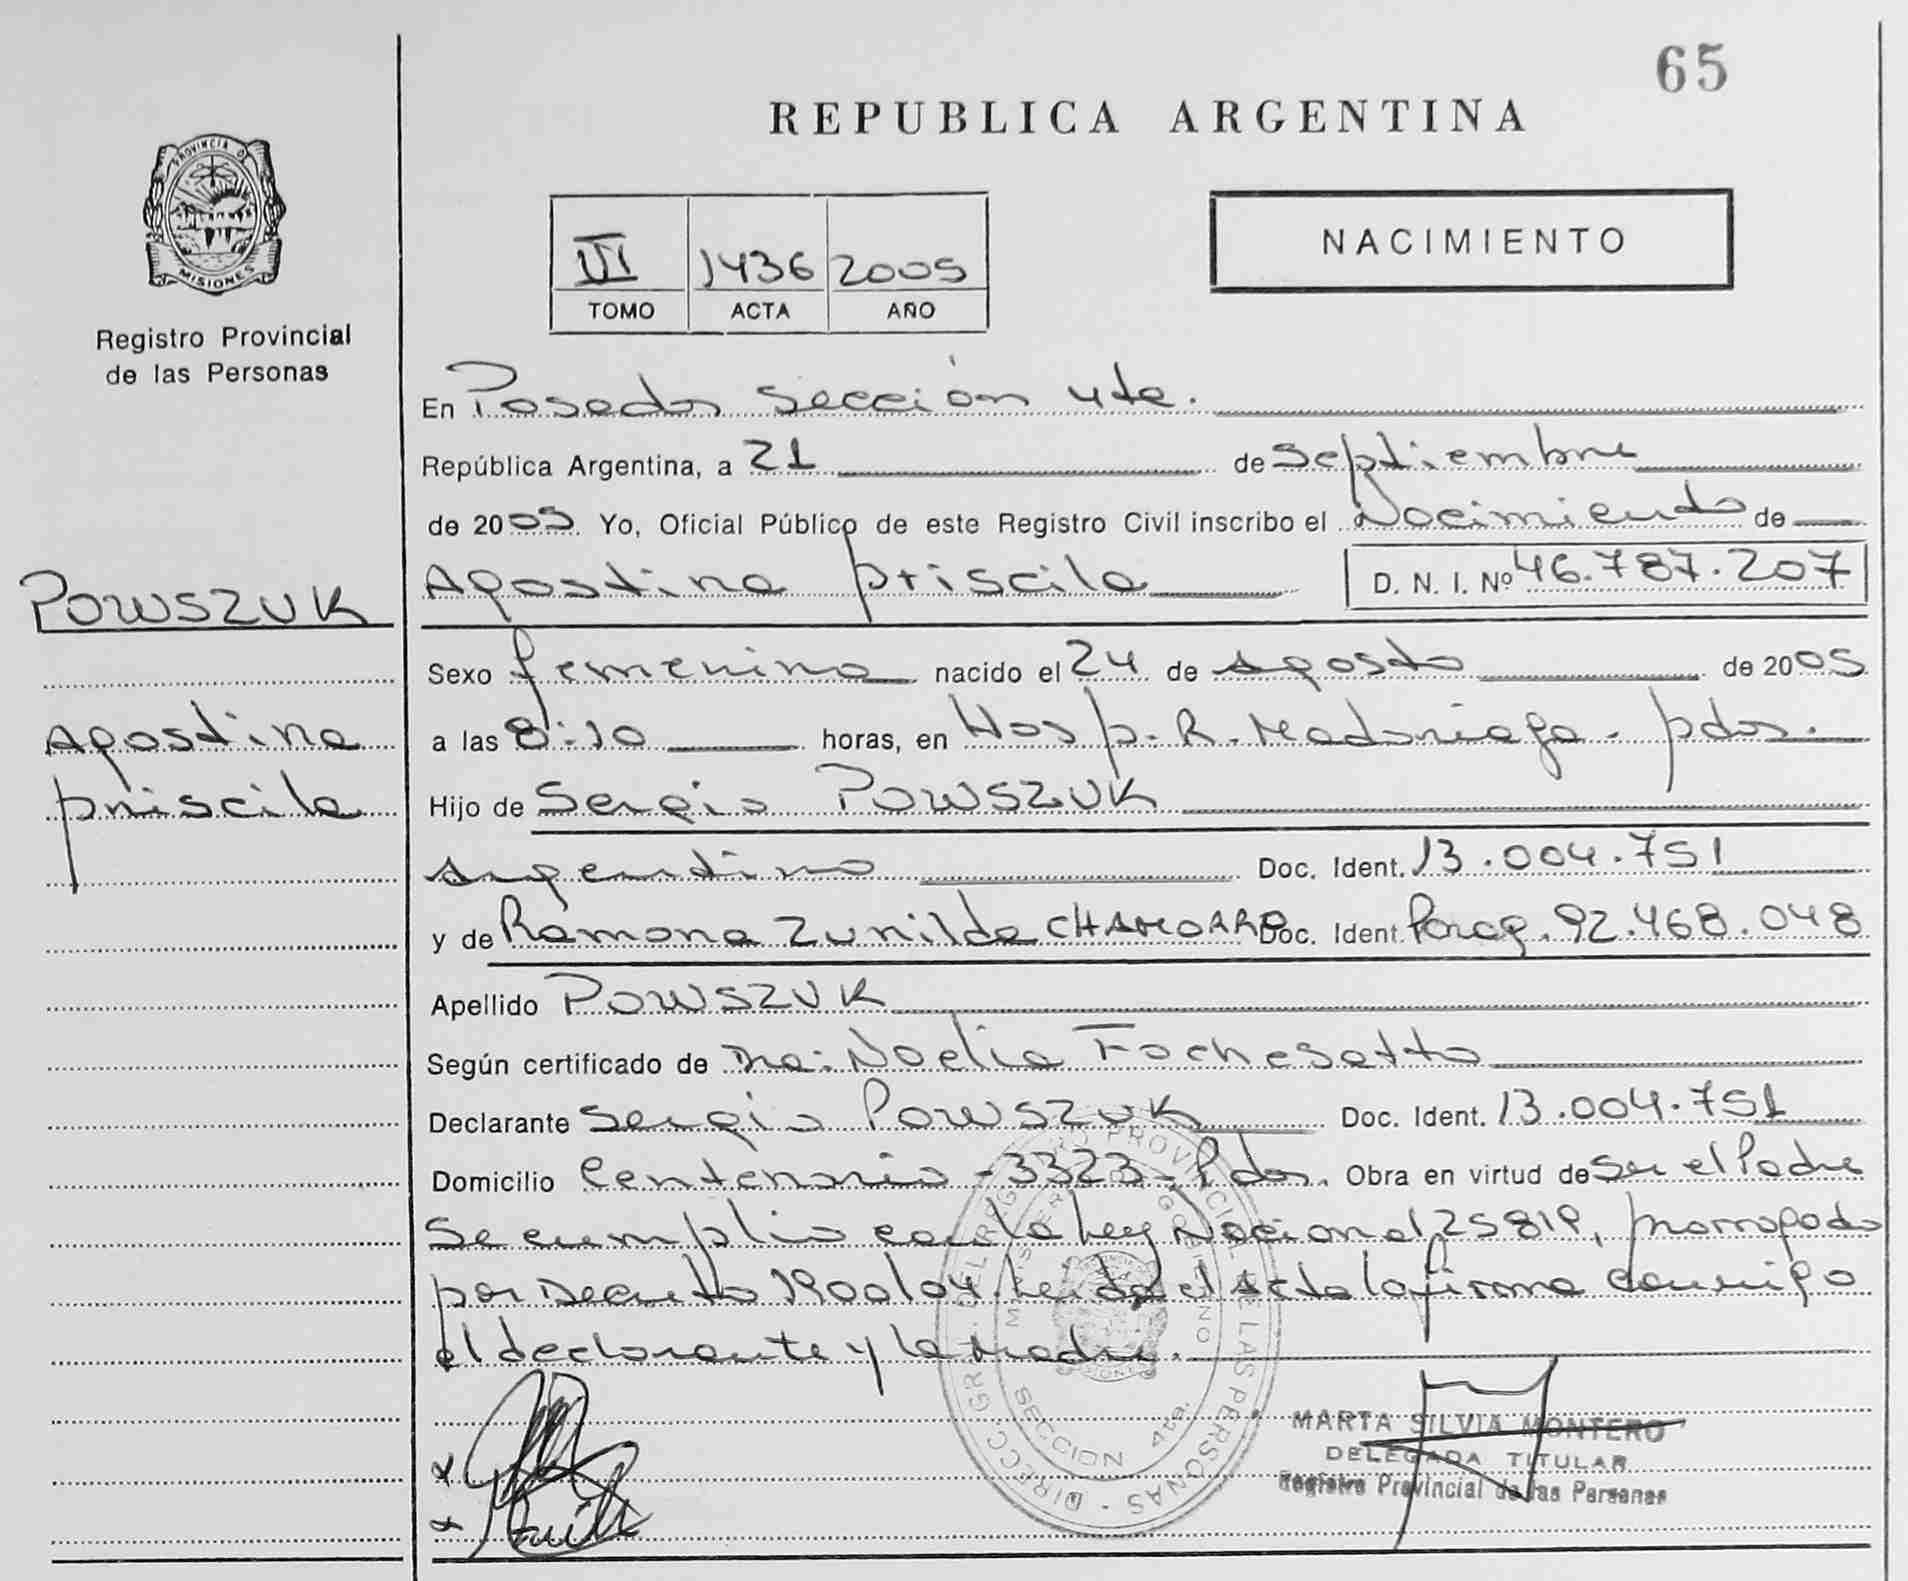 65
REPUBLICA ARGENTINA
PROVINCIA DE
MISIONES
Registro Provincial
de las Personas
III 1436 2005
TOMO ACTA AÑO
NACIMIENTO
En Posadas Sección 4ta.
República Argentina, a 21 de Septiembre
de 2005 Yo, Oficial Público de este Registro Civil inscribo el Nacimiento de
Agostina Priscila D. N. I. Nº 46.787.207
POWSZUK
Agostina
Priscila
Sexo femenino nacido el 24 de Agosto de 2005
a las 8:10 horas, en Hosp. R. Madariaga. Pdas.
Hijo de Sergio POWSZUK
Argentino Doc. Ident. 13.004.751
y de Ramona Zunilda CHAMORRO Doc. Ident. Parag. 92.468.048
Apellido POWSZUK
Según certificado de Dra: Noelia Fochesatto
Declarante Sergio POWSZUK Doc. Ident. 13.004.751
Domicilio Centenario - 3323 - Pdas. Obra en virtud de Ser el Padre
Se cumplio con la Ley Nacional 25819, prorrogado
por Decreto 1900/04. Leida el Acta la firma conmigo
el declarante y la Madre.
DIRECC. GRL. DEL REGISTRO PROVINCIAL DE LAS PERSONAS
SECCION 4ta.
MARTA SILVIA MONTERO
DELEGADA TITULAR
Registro Provincial de las Personas